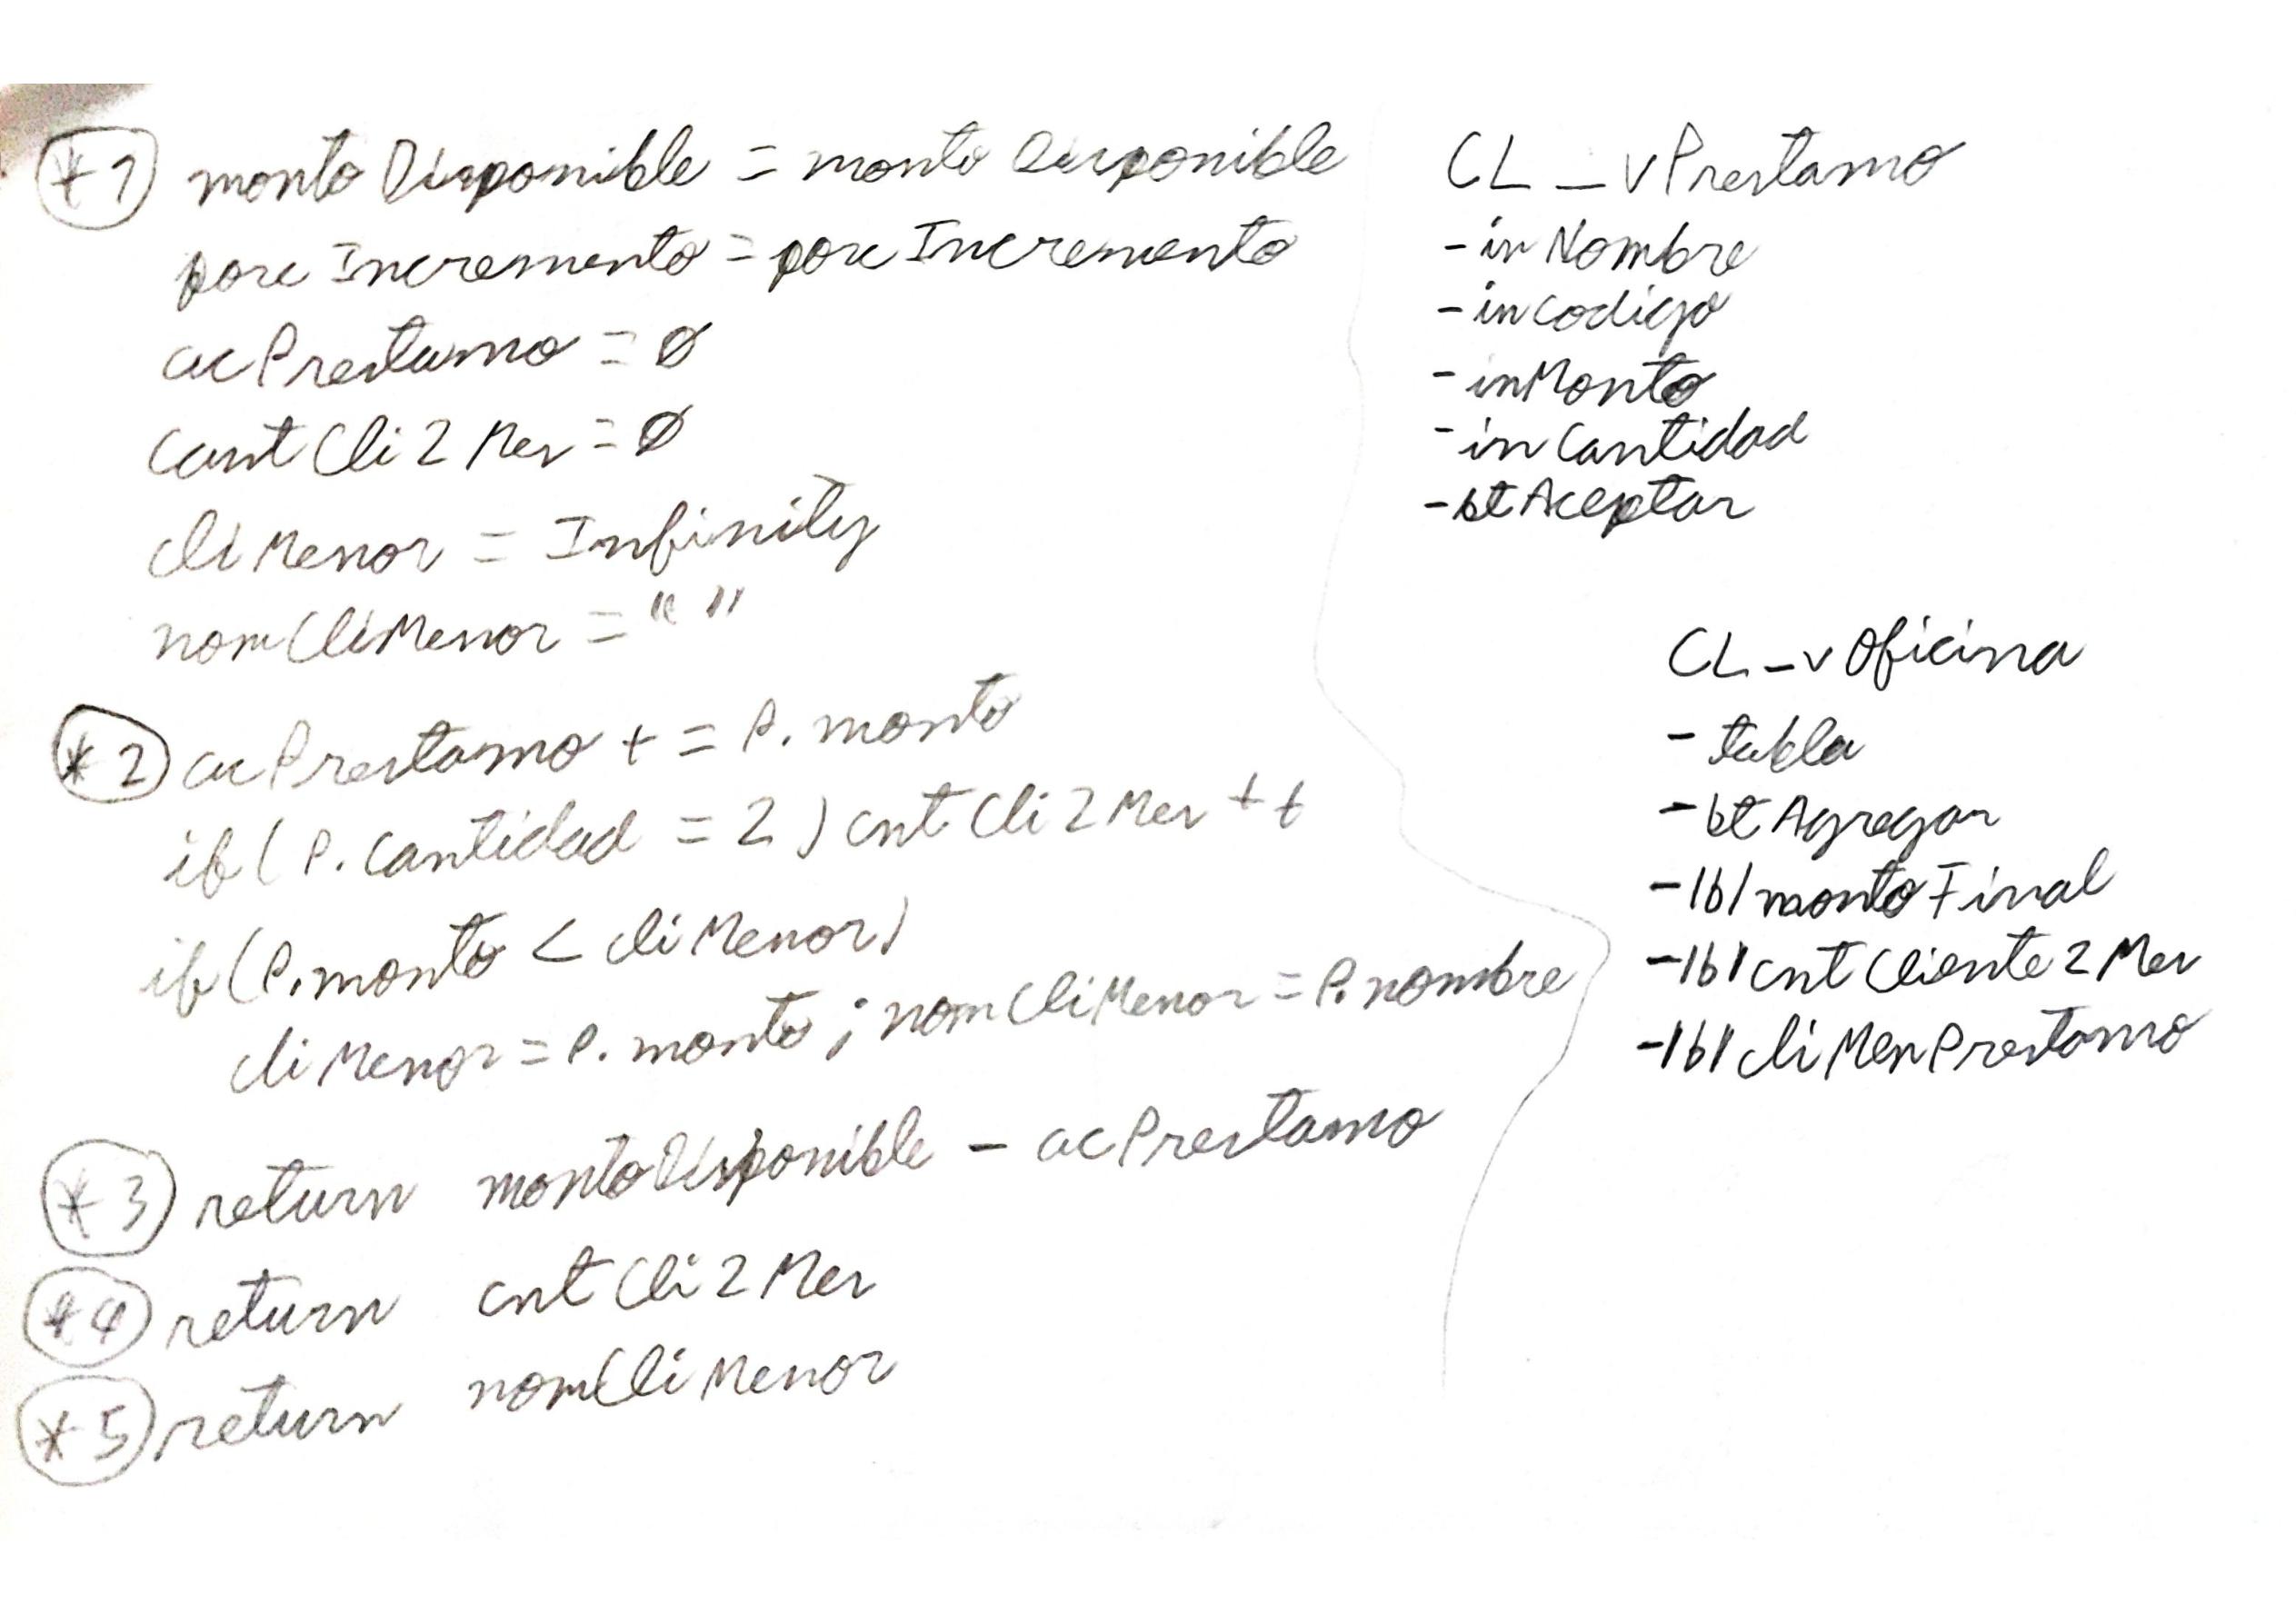 *1 montoDisponible = montoDisponible
porcIncremento = porcIncremento
acPrestamo = 0
cantCli2Mes = 0
cliMenor = Infinity
nomCliMenor = " "
*2 acPrestamo += P.monto
if (P.cantidad = 2) cntCli2Mes ++
if (P.monto < cliMenor)
cliMenor = P.monto ; nomCliMenor = P.nombre
*3 return montoDisponible - acPrestamo
*4 return cntCli2Mes
*5 return nomCliMenor
CL_vPrestamo
- inNombre
- incodigo
- inMonto
- inCantidad
- btAceptar
CL_vOficina
- tabla
- btAgregar
- lblmontoFinal
- lblcntCliente2Mes
- lblcliMenPrestamo